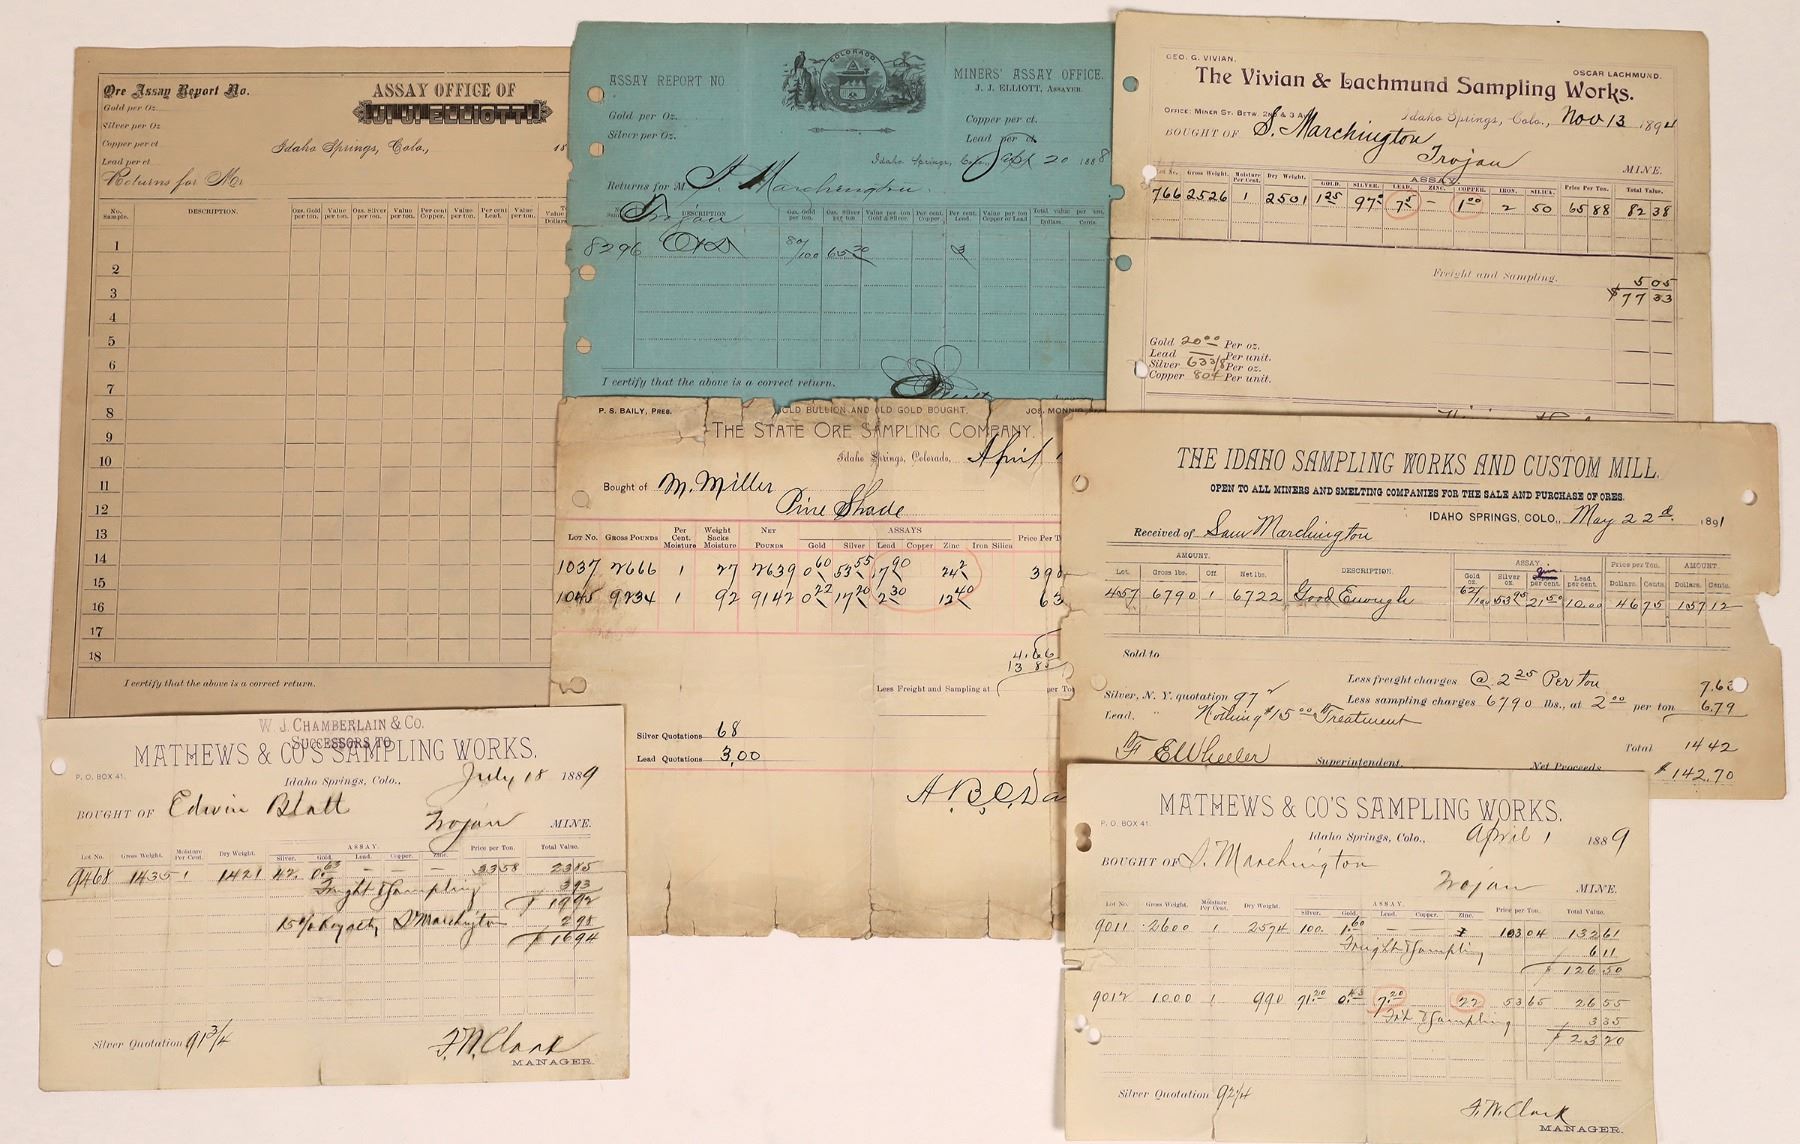 Ore Assay Report No.
ASSAY OFFICE OF
J. J. ELLIOTT.
Gold per Oz.
Silver per Oz
Copper per ct
Lead per ct
Idaho Springs, Colo., 18
Returns for Mr
No. Sample. DESCRIPTION. Ozs. Gold per ton. Value per ton. Ozs. Silver per ton. Value per ton. Per cent Copper. Value per ton. Per cent Lead. Value per ton. Value Dollars
1
2
3
4
5
6
7
8
9
10
11
12
13
14
15
16
17
18
I certify that the above is a correct return.
ASSAY REPORT NO
COLORADO
MINERS' ASSAY OFFICE.
J. J. ELLIOTT, ASSAYER.
Gold per Oz.
Silver per Oz.
Copper per ct.
Lead per ct
Idaho Springs, Colo. Sept 20 1888
Returns for M S Marchington.
Trojan
DESCRIPTION Ozs. Gold per ton. Ozs. Silver per ton. Value per ton Gold & Silver Per cent. Copper. Per cent. Lead. Value per ton Copper or Lead Total value per ton. Dollars. Cents.
8296 Ore 80/100 65 20 3
I certify that the above is a correct return.
GEO. G. VIVIAN. OSCAR LACHMUND.
The Vivian & Lachmund Sampling Works.
OFFICE: MINER ST. BETW. 2ND & 3
Idaho Springs, Colo., Nov 13 1894
BOUGHT OF S. Marchington
Trojan MINE.
Lot No. Gross Weight. Moisture Per Cent. Dry Weight. ASSAY GOLD. SILVER. LEAD. ZINC. COPPER. IRON. SILICA. Price Per Ton. Total Value.
766 2526 1 2501 1 25 97 2 7 5 – 1 00 2 50 65 88 82 38
Freight and Sampling. 5 05
$77 33
Gold 20 00 Per oz.
Lead — Per unit.
Silver 63 3/8 Per oz.
Copper 80¢ Per unit.
P. S. BAILY, PRES. GOLD BULLION AND OLD GOLD BOUGHT. JOS. MONNIG
THE STATE ORE SAMPLING COMPANY.
Idaho Springs, Colorado, April 1
Bought of M. Miller
Pine Shade
LOT NO. GROSS POUNDS Per Cent. Moisture Weight Sacks Moisture NET POUNDS ASSAYS Gold Silver Lead Copper Zinc Iron Silica Price Per T
1037 2666 1 27 2639 0 60 53 55 7 90 24 2 390
1045 9234 1 92 9142 0 22 17 20 2 30 12 40 63
4.66
13 85
Less Freight and Sampling at per Ton
Silver Quotations 68
Lead Quotations 3,00
THE IDAHO SAMPLING WORKS AND CUSTOM MILL.
OPEN TO ALL MINERS AND SMELTING COMPANIES FOR THE SALE AND PURCHASE OF ORES.
IDAHO SPRINGS, COLO., May 22d. 1891
Received of Sam Marchington
AMOUNT. DESCRIPTION. ASSAY Price per Ton. AMOUNT.
Lot. Gross lbs. Off Net lbs. Gold oz. Silver oz. Zin per cent. Lead per cent. Dollars. Cents. Dollars. Cents.
457 6790 1 6722 Good Enough 62/100 53 95 21 50 10.00 46 75 157 12
Sold to
Less freight charges @ 2 25 Per ton 7.63
Silver, N. Y. quotation 97 2 Less sampling charges 6790 lbs., at 2 00 per ton 6.79
Lead, " Nothing $15 00 Treatment
Total 14 42
F E Wheeler Superintendent. Net Proceeds $142.70
W. J. CHAMBERLAIN & CO.
SUCCESSORS TO
MATHEWS & CO'S SAMPLING WORKS.
P. O. BOX 41. Idaho Springs, Colo., July 18 1889
BOUGHT OF Edwin Blatt
Trojan MINE.
Lot No. Gross Weight. Moisture Per Cent. Dry Weight. ASSAY. Silver. Gold. Lead. Copper. Zinc. Price per Ton. Total Value.
9468 1435 1 1421 42. 0.63 – – – 33 58 23 85
Freight & Sampling 3 93
$ 19 92
15% Royalty S Marchington 2 98
$ 16 94
Silver Quotation 91 3/4
F. W. Clark
MANAGER.
MATHEWS & CO'S SAMPLING WORKS.
P. O. BOX 41. Idaho Springs, Colo., April 1 1889
BOUGHT OF S. Marchington
Trojan MINE.
Lot No. Gross Weight. Moisture Per Cent. Dry Weight. ASSAY. Silver. Gold. Lead. Copper. Zinc. Price per Ton. Total Value.
9011 2600 1 2574 100. 1.60 – – 7 103 04 132 61
Freight & Sampling 6 11
$ 126 50
9012 1000 1 990 71.20 0.43 7.20 22 53 65 26 55
Frt & Sampling 3 35
$ 23 20
Silver Quotation 92 1/4
F. W. Clark
MANAGER.